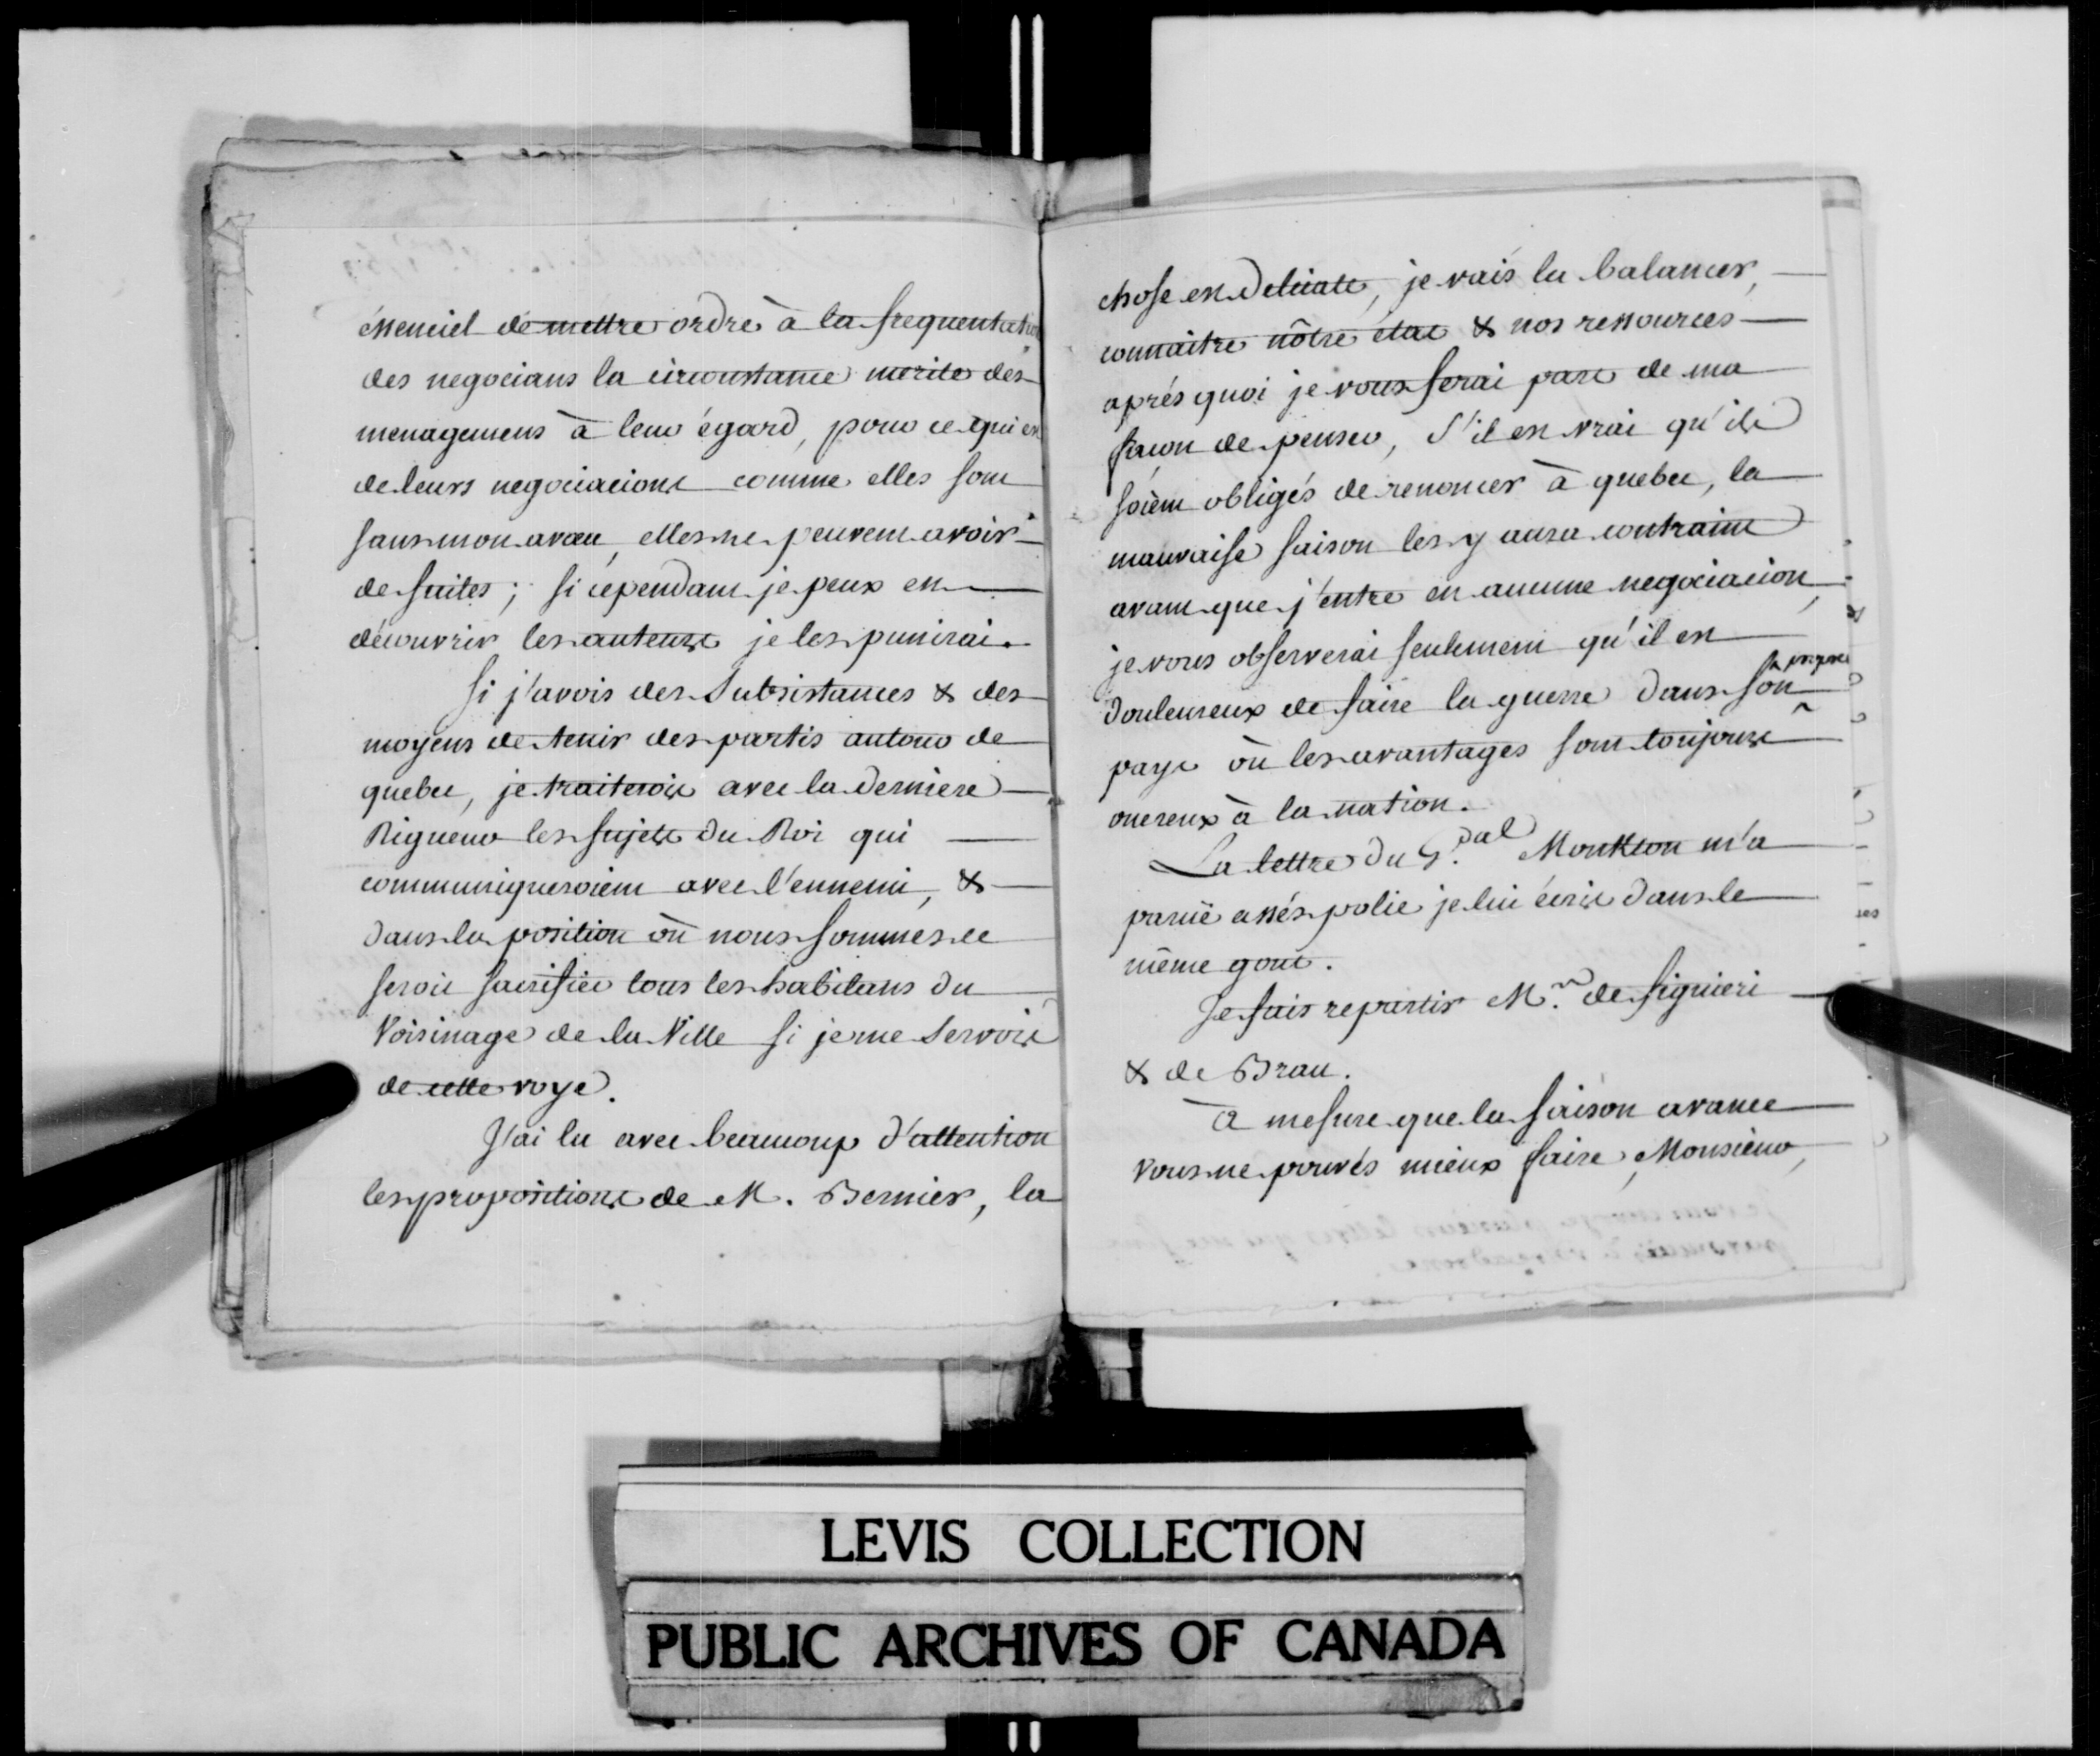 éssenciel de mettre ordre à la frequentation
des negocians la circonstance merite des
menagemens à leur égard, pour ce qui est
de leurs negociacions comme elles sont
sans mon aveu, elles ne peuvent avoir
de suites ; si cependant je peux en
découvrir les auteurs je les punirai.
Si j'avois des Subsistances & des
moyens de tenir des partis autour de
quebec, je traiterois avec la derniere
Rigueur les sujets du Roi qui
communiqueroient avec l'ennemi, &
dans la position où nous sommes ce
seroit sacrifier tous les habitans du
Voisinage de la Ville si je me Servois
de cette voye.
J'ai lu avec beaucoup d'attention
les propositions de M. Bernier, la
chose est delicate, je vais la balancer,
connaitre nôtre état & nos ressources
aprés quoi je vous ferai part de ma
façon de penser, S'il est vrai qu'ils
soient obligés de renoncer à quebec, la
mauvaise saison les y aura contraint
avant que j'entre en aucune negociacion,
je vous observerai seulement qu'il est
douleureux de faire la guerre dans son propre
pays où les avantages sont toujours
onereux à la nation.
La lettre du G.ral Monkton m'a
paruë assés polie je lui écris dans le
même gout.
Je fais repartir M.rs de Signieri
& de Brau.
à mesure que la saison avance
vous ne pouvés mieux faire, Monsieur,
LEVIS COLLECTION
PUBLIC ARCHIVES OF CANADA